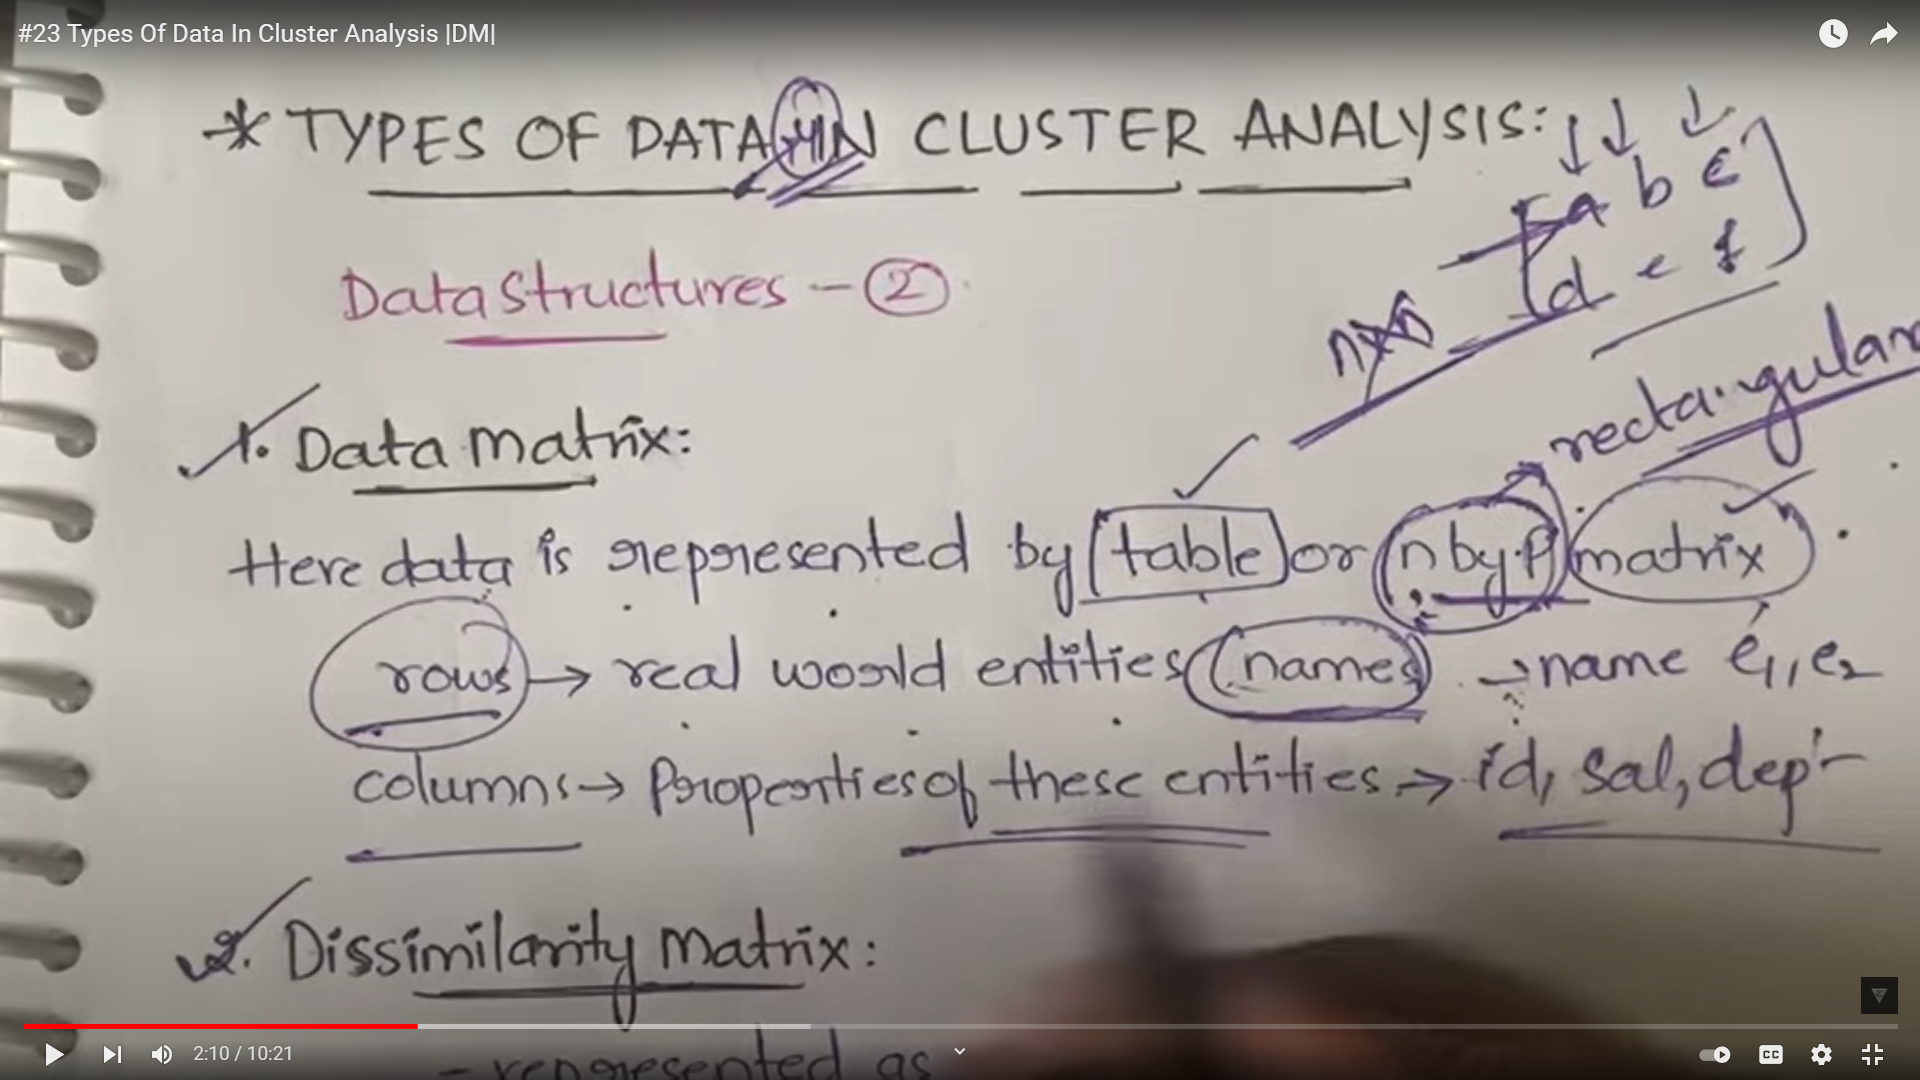 #23 Types Of Data In Cluster Analysis |DM|
* TYPES OF DATA IN CLUSTER ANALYSIS:
a b c
d e f
Data Structures - 2
n×n
rectangular
1. Data Matrix:
Here data is represented by table or n by p matrix
rows → real world entities (names) → name e1, e2
columns → Properties of these entities → id, sal, dept
2. Dissimilarity Matrix:
- represented as
2:10 / 10:21
CC